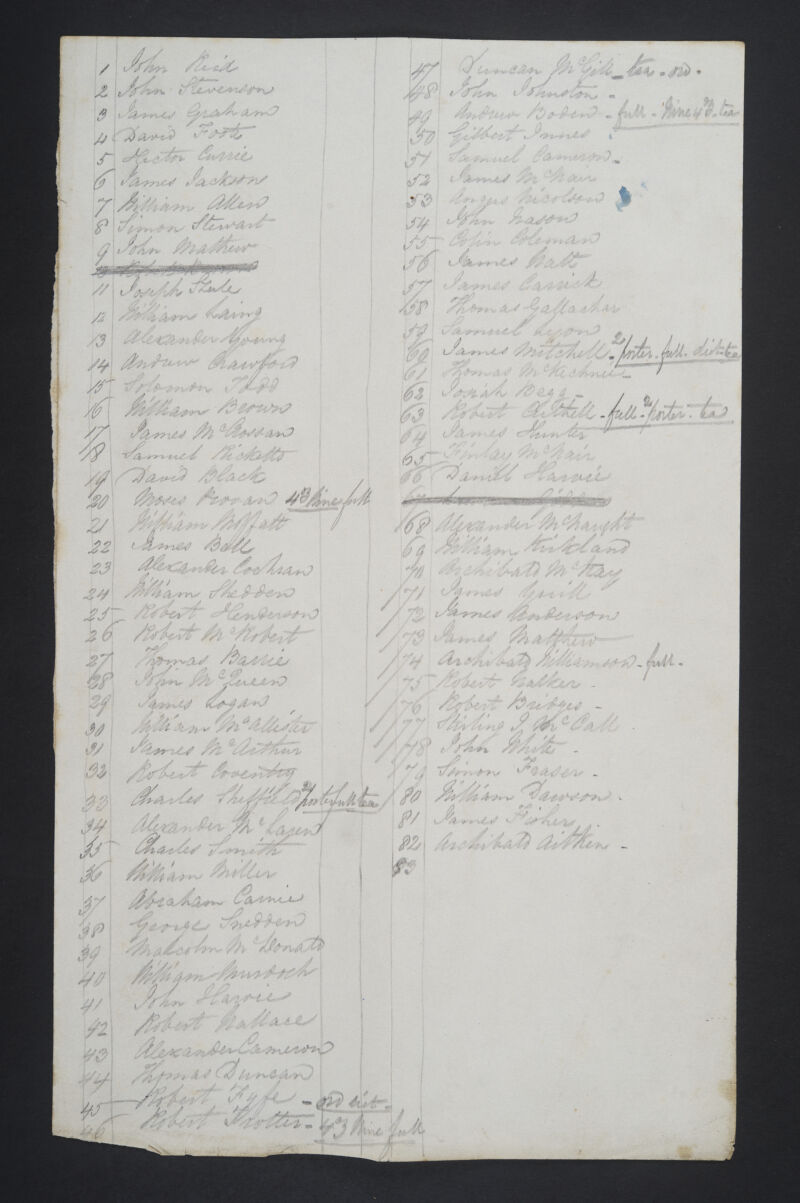 1 John Reid
2 John Stevenson
3 James Graham
4 David Foote
5 Hector Currie
6 James Jackson
7 William Allen
8 Simon Stewart
9 John Mathew
11 Joseph Steele
12 William Laing
13 Alexander Young
14 Andrew Crawford
15 Solomon Todd
16 William Brown
17 James McCrossan
18 Samuel Ricketts
19 David Black
20 Moses Provan 4 3 Wine full
21 William Moffatt
22 James Bell
23 Alexander Cochran
24 William Shedden
25 Robert Henderson
26 Robert McRobert
27 Thomas Barrie
28 John McQueen
29 James Logan
30 William McAllister
31 James McArthur
32 Robert Coventry
33 Charles Sheffield porter full tea
34 Alexander McLaren
35 Charles Smith
36 William Miller
37 Abraham Carnie
38 George Snedden
39 Malcolm McDonald
40 William Murdoch
41 John Harvie
42 Robert Wallace
43 Alexander Cameron
44 Thomas Duncan
45 Robert Fyfe - ord diet -
46 Robert Trotter - 4 3 Wine full
47 Duncan McGill - tea - ord -
48 John Johnston -
49 Andrew Boden - full - Wine 4 3 - tea
50 Gilbert Innes -
51 Samuel Cameron -
52 James McNair
53 Angus Nicolson
54 John Nason
55 Colin Coleman
56 James Watt
57 James Carrick
58 Thomas Gallacher
59 Samuel Lyon
60 James Mitchell - 2 porter - full diet - tea
61 Thomas McKechnie -
62 Josiah Begg -
63 Robert - full - porter - tea
64 James Hunter
65 Finlay McNair
66 Daniel Harvie
68 Alexander McNaught
69 William Kirkland
70 Archibald McKay
71 James
72 James Anderson
73 James Matthew
74 Archibald Williamson - full -
75 Robert Walker -
76 Robert Bridges -
77 Stirling J. McCall
78 John White -
79 Simon Fraser -
80 William Dawson -
81 James Fisher
82 Archibald Aitken -
83